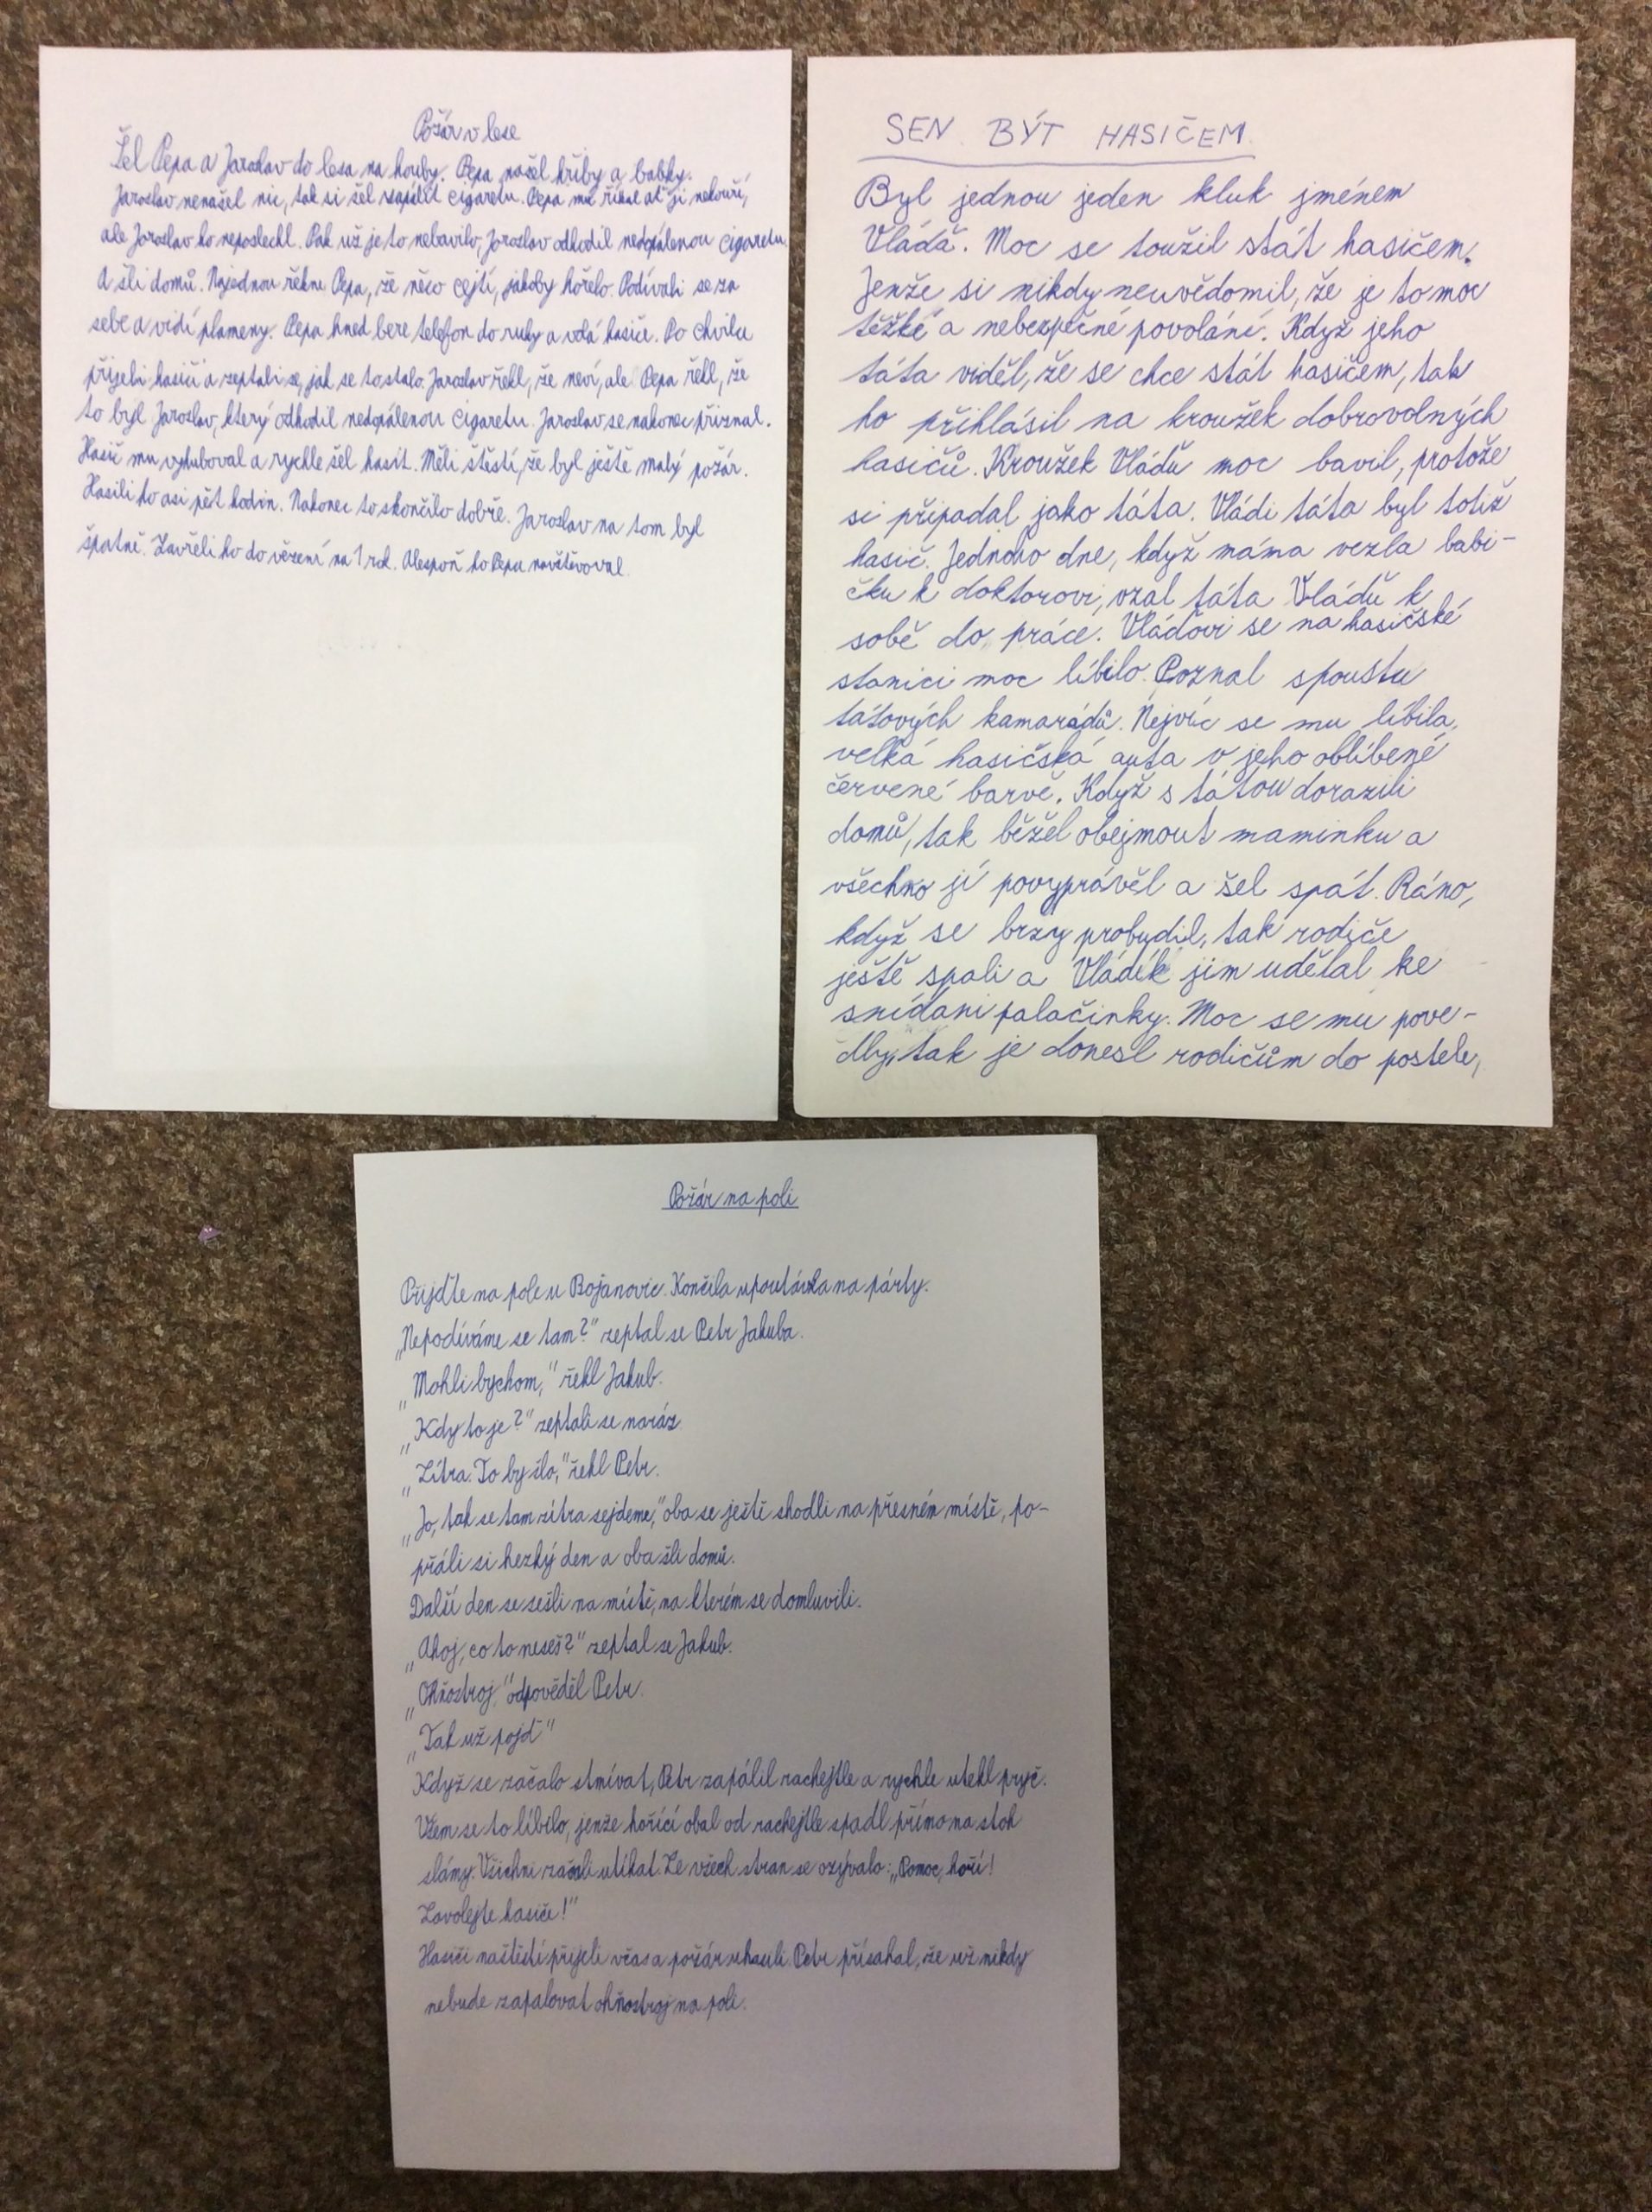 Požár v lese
Šel Pepa a Jaroslav do lesa na houby. Pepa našel hřiby a babky.
Jaroslav nenašel nic, tak si šel zapálit cigaretu. Pepa mu říkal ať ji nekouří,
ale Jaroslav ho neposlechl. Pak už je to nebavilo, Jaroslav odhodil nedopálenou cigaretu.
A šli domů. Najednou řekne Pepa, že něco cejtí, jakoby hořelo. Podívali se za
sebe a vidí plameny. Pepa hned bere telefon do ruky a volá hasiče. Po chvilu
přijeli hasiči a zeptali se, jak se to stalo. Jaroslav řekl, že neví, ale Pepa řekl, že
to byl Jaroslav, který odhodil nedopálenou cigaretu. Jaroslav se nakonec přiznal.
Hasič mu vyhuboval a rychle šel hasit. Měli štěstí, že byl ještě malý požár.
Hasili ho asi pět hodin. Nakonec to skončilo dobře. Jaroslav na tom byl
špatně. Zavřeli ho do vězení na 1 rok. Alespoň ho Pepa navštěvoval.
SEN BÝT HASIČEM.
Byl jednou jeden kluk jménem
Vláďa. Moc se toužil stát hasičem.
Jenže si nikdy neuvědomil, že je to moc
těžké a nebezpečné povolání. Když jeho
táta viděl, že se chce stát hasičem, tak
ho přihlásil na kroužek dobrovolných
hasičů. Kroužek Vláďu moc bavil, protože
si připadal jako táta. Vládi táta byl totiž
hasič. Jednoho dne, když máma vezla babi-
čku k doktorovi, vzal táta Vláďu k
sobě do práce. Vláďovi se na hasičské
stanici moc líbilo. Poznal spoustu
tátových kamarádů. Nejvíc se mu líbila
velká hasičská auta v jeho oblíbené
červené barvě. Když s tátou dorazili
domů, tak běžel obejmout maminku a
všechno jí povyprávěl a šel spát. Ráno,
když se brzy probudil, tak rodiče
ještě spali a Vládík jim udělal ke
snídani palačinky. Moc se mu pove-
dly, tak je donesl rodičům do postele,
Požár na poli
Přijďte na pole u Bojanovic. Končila upoutávka na párty.
„Nepodíváme se tam?" zeptal se Petr Jakuba.
„Mohli bychom," řekl Jakub.
„Kdy to je?" zeptali se naráz.
„Zítra. To by šlo," řekl Petr.
„Jo, tak se tam zítra sejdeme," oba se ještě shodli na přesném místě, po-
přáli si hezký den a oba šli domů.
Další den se sešli na místě, na kterém se domluvili.
„Ahoj, co to neseš?" zeptal se Jakub.
„Ohňostroj." odpověděl Petr.
„Tak už pojď"
Když se začalo stmívat, Petr zapálil rachejtle a rychle utekl pryč.
Všem se to líbilo, jenže hořící obal od rachejtle spadl přímo na stoh
slámy. Všichni začali utíkat. Ze všech stran se ozývalo: „Pomoc, hoří!
Zavolejte hasiče!"
Hasiči naštěstí přijeli včas a požár uhasili. Petr přísahal, že už nikdy
nebude zapalovat ohňostroj na poli.